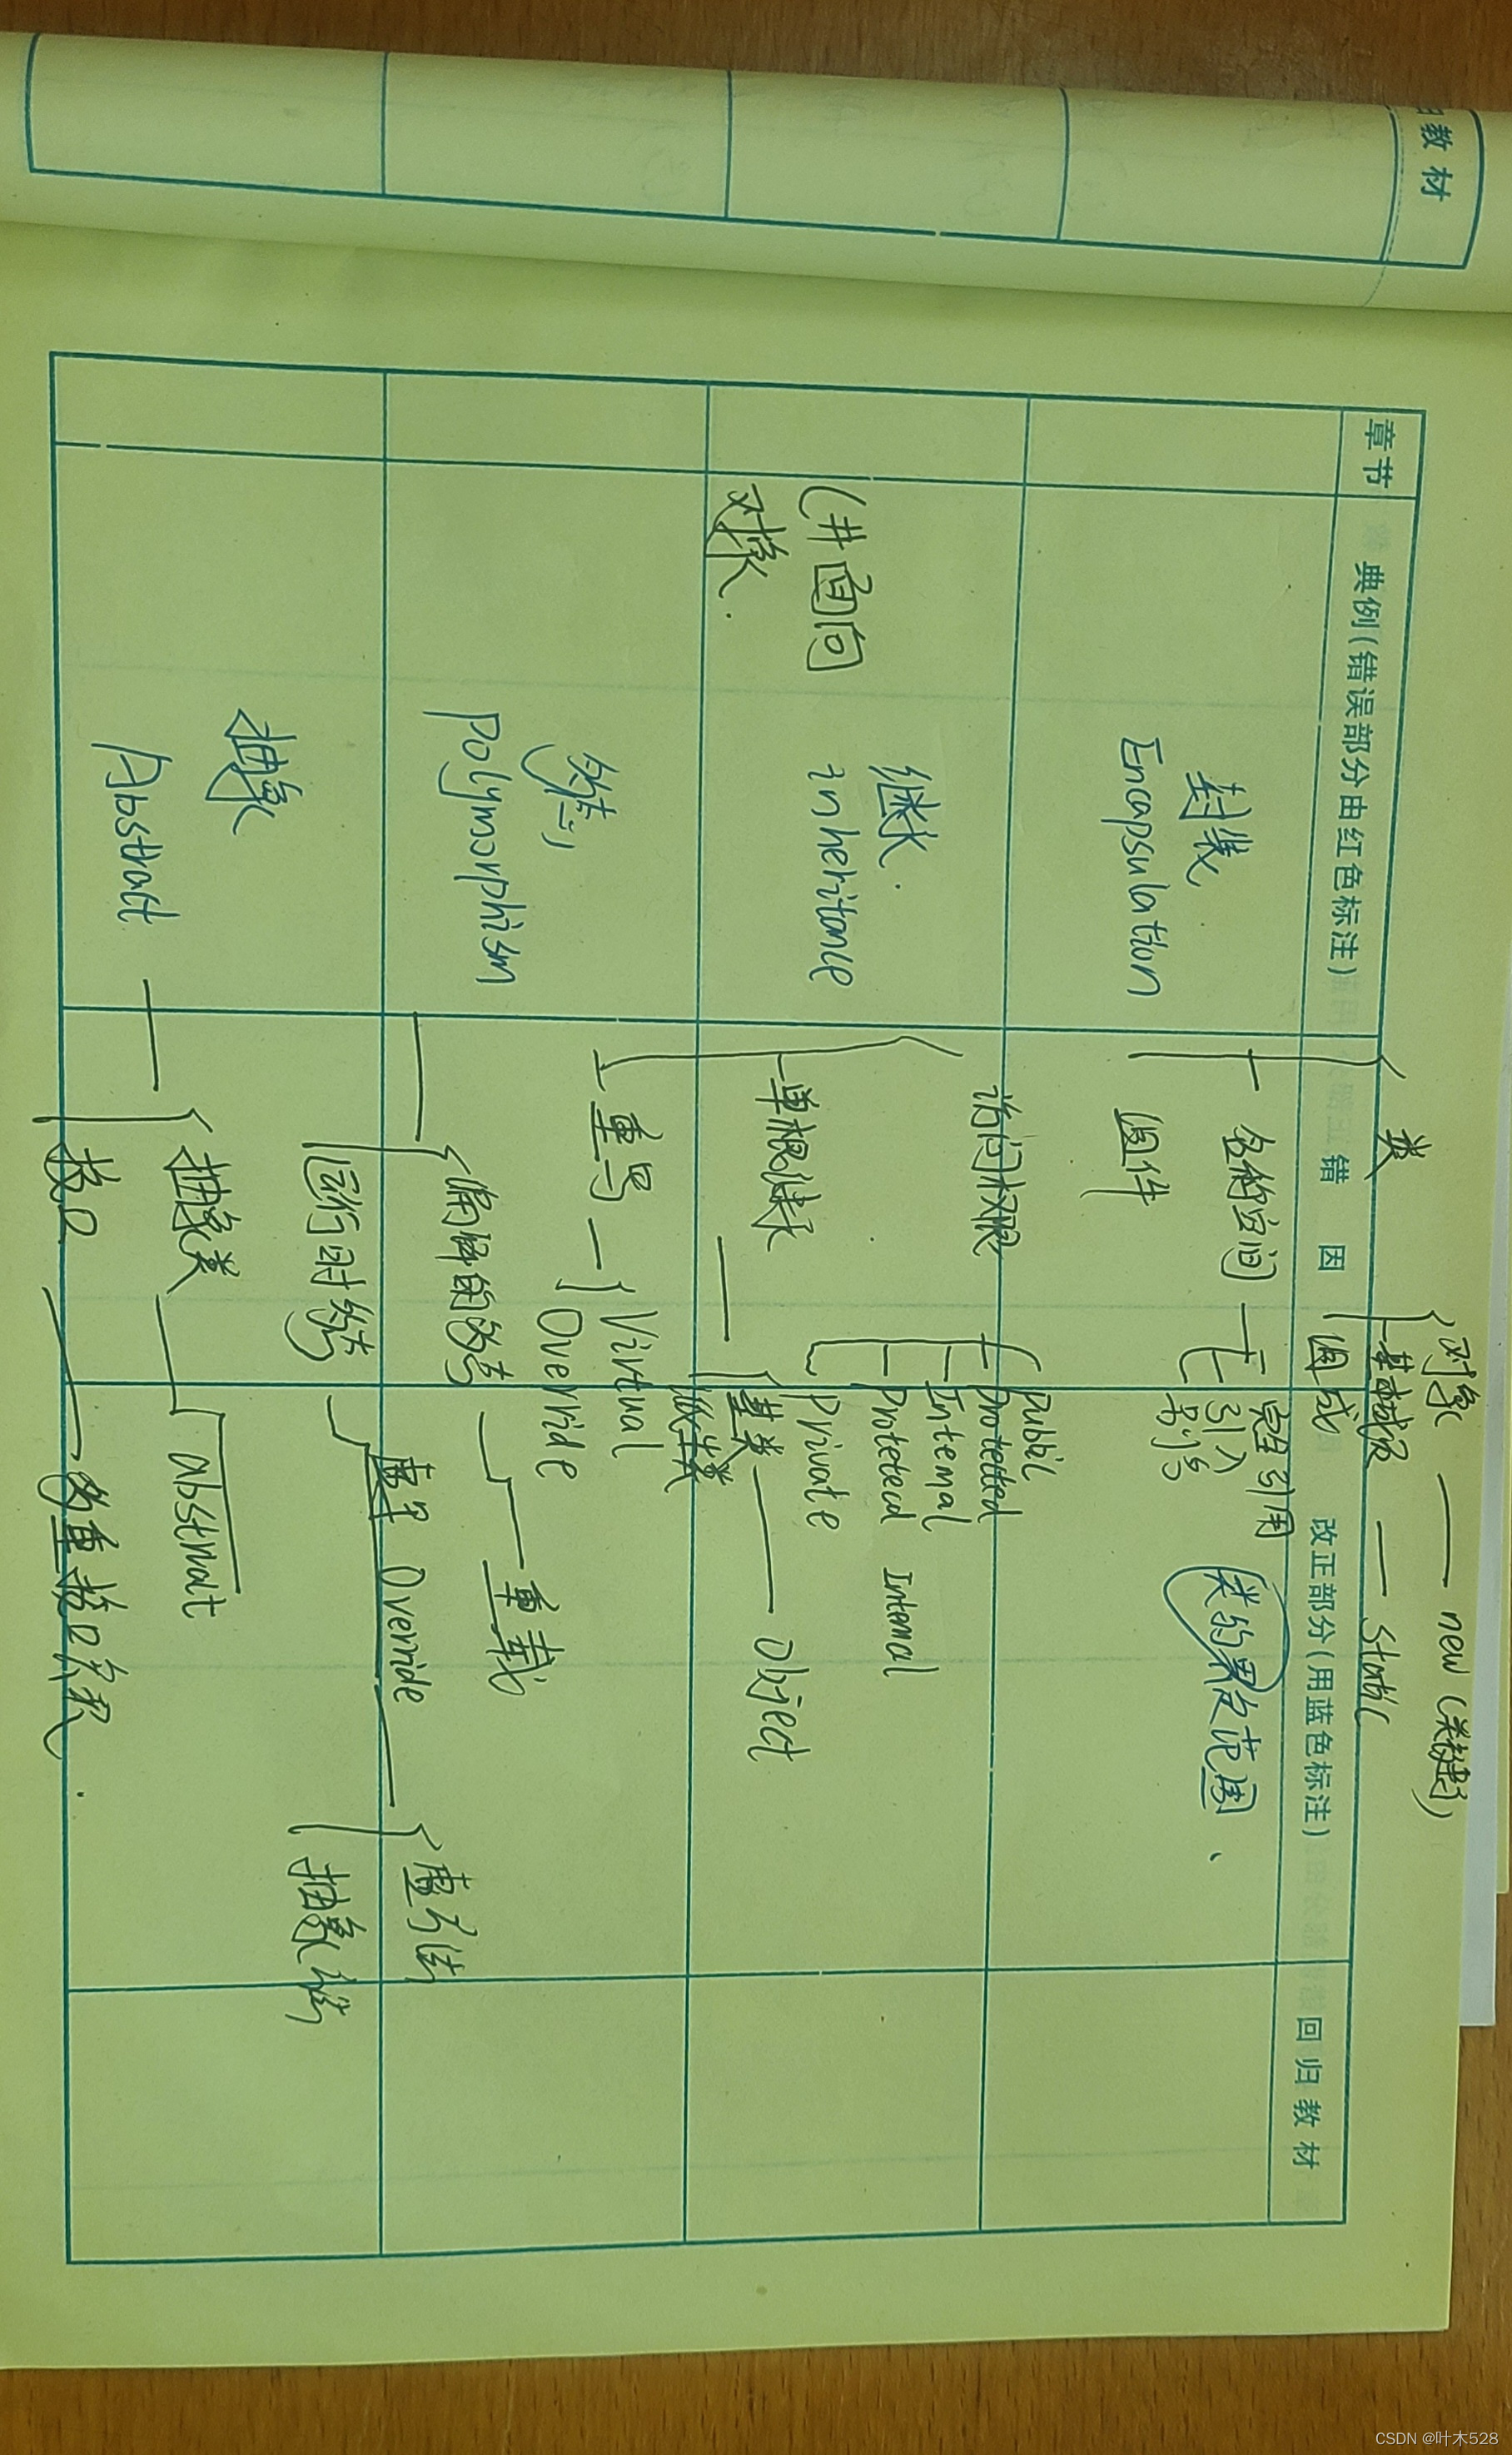 教材
章节
典例(错误部分由红色标注)
错因
改正部分(用蓝色标注)
回归教材
C井面向
对象.
封装
Encapsulation
类
对象
new (关键字)
基本成员
static
组成
名称空间
完全引用
引入
别名
类的界定范围、
组件
继承.
inheritance
访问权限
Public
Protected
Internal
Protected Internal
Private
单根继承
基类
Object
派生类
重写
Virtual
Override
多态
Polymorphism
编译时多态
重载
运行时多态
重写 Override
虚方法
抽象方法
抽象
Abstract
抽象类
abstract
接口
多重接口
CSDN @叶木528